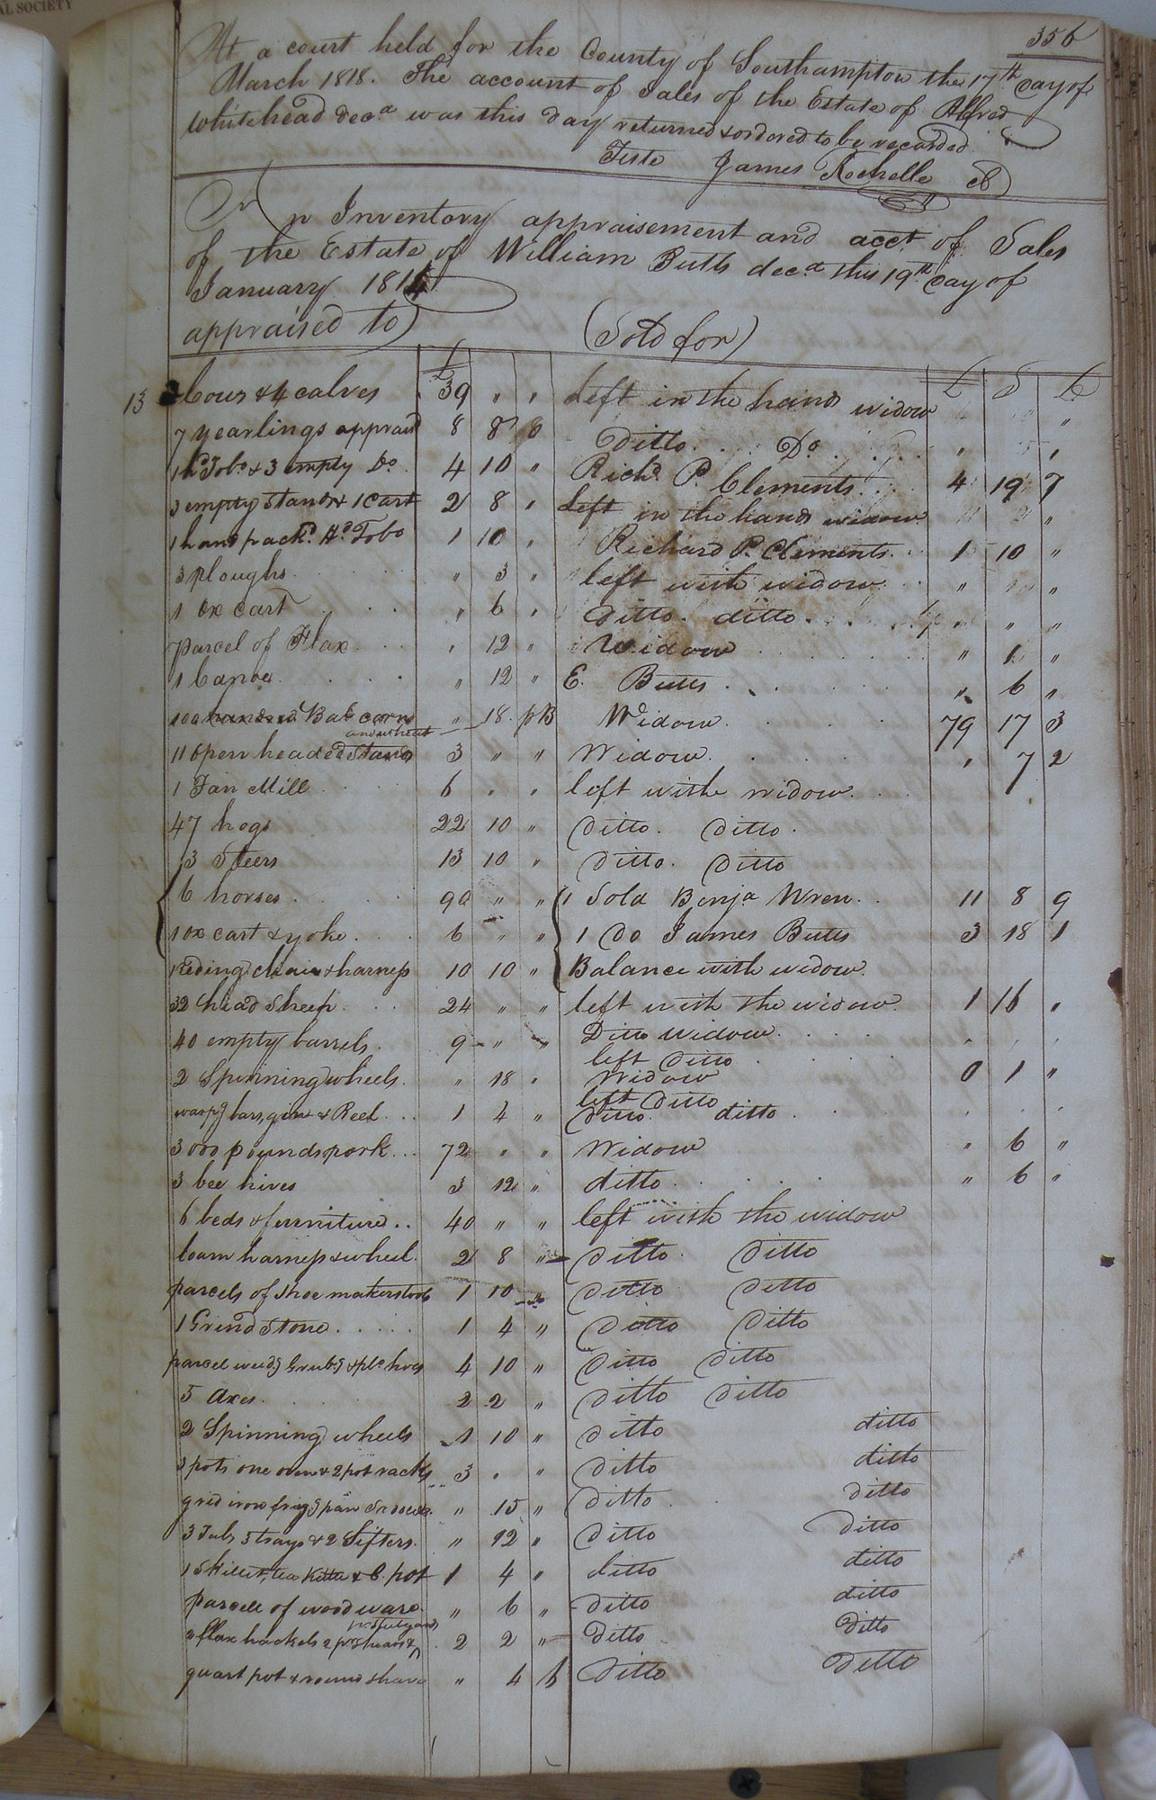 AL SOCIETY
356
At a court held for the County of Southampton the 17th day of
March 1818. The account of Sales of the Estate of Alfred
Whitehead decd was this day returned & ordered to be recorded
Teste James Rochelle
An Inventory appraisement and acct of Sales
of the Estate of William Butts decd this 19th day of
January 1814
appraised to (Sold for)
£ £ S
13 Cows & 4 calves 39 " " left in the hand widow "
7 yearlings apprais'd 8 8 0 Ditto Do " "
1 hd Tobo & 3 empty Do 4 10 " Richd P. Clements 4 19 7
3 empty Stands & 1 Cart 2 8 " Left in the hands widow "
1 hand pack'd Hd Tobo 1 10 " Richard P. Clements 1 10 "
3 ploughs " 3 " left with widow " "
1 Ox cart " 6 " Ditto. ditto. " " "
parcel of Flax " 12 " Widow " 1 "
1 Canoe " 12 " E. Butts " 6 "
100 Bar corn " 18 p B Widow 79 17 3
11 Open headed Stands 3 " " Widow " 7 2
1 Fan Mill 6 " " left with widow
47 hogs 22 10 " Ditto. Ditto.
3 Steers 13 10 " Ditto. Ditto
6 horses 90 " " 1 Sold Benja Wren 11 8 9
1 ox cart & yoke 6 " " 1 Do James Butts 3 18 1
1 riding chair & harness 10 10 " Balance with widow
32 head Sheep 24 " " left with the widow 1 16 "
40 empty barrels 9 " " Ditto widow
left Ditto
2 Spinning wheels " 18 " Widow 0 1 "
left Ditto
warpg bars, gin & Reel 1 4 " Ditto ditto
3000 pounds pork 72 " " Widow " 6 "
3 bee hives 3 12 " ditto " 6 "
6 beds & furniture 40 " " left with the widow
loam harness & wheel 2 8 " Ditto Ditto
parcels of Shoe makers tools 1 10 " Ditto Ditto
1 Grind Stone 1 4 " Ditto Ditto
parcel weedg Grubg & hoes 4 10 " Ditto Ditto
5 Axes 2 2 " Ditto Ditto
2 Spinning wheels 1 10 " Ditto ditto
3 pots one oven & 2 pot racks 3 " " Ditto ditto
grid iron fryg pan " 15 " Ditto ditto
3 Tubs 5 trays & 2 Sifters " 12 " Ditto Ditto
1 Skillet, tea kittle & C. pot 1 4 " Ditto ditto
parcell of wood ware " 6 " Ditto ditto
flax hackels 2 pr Shears & 2 2 " Ditto Ditto
quart pot & round shave " 4 6 Ditto Ditto